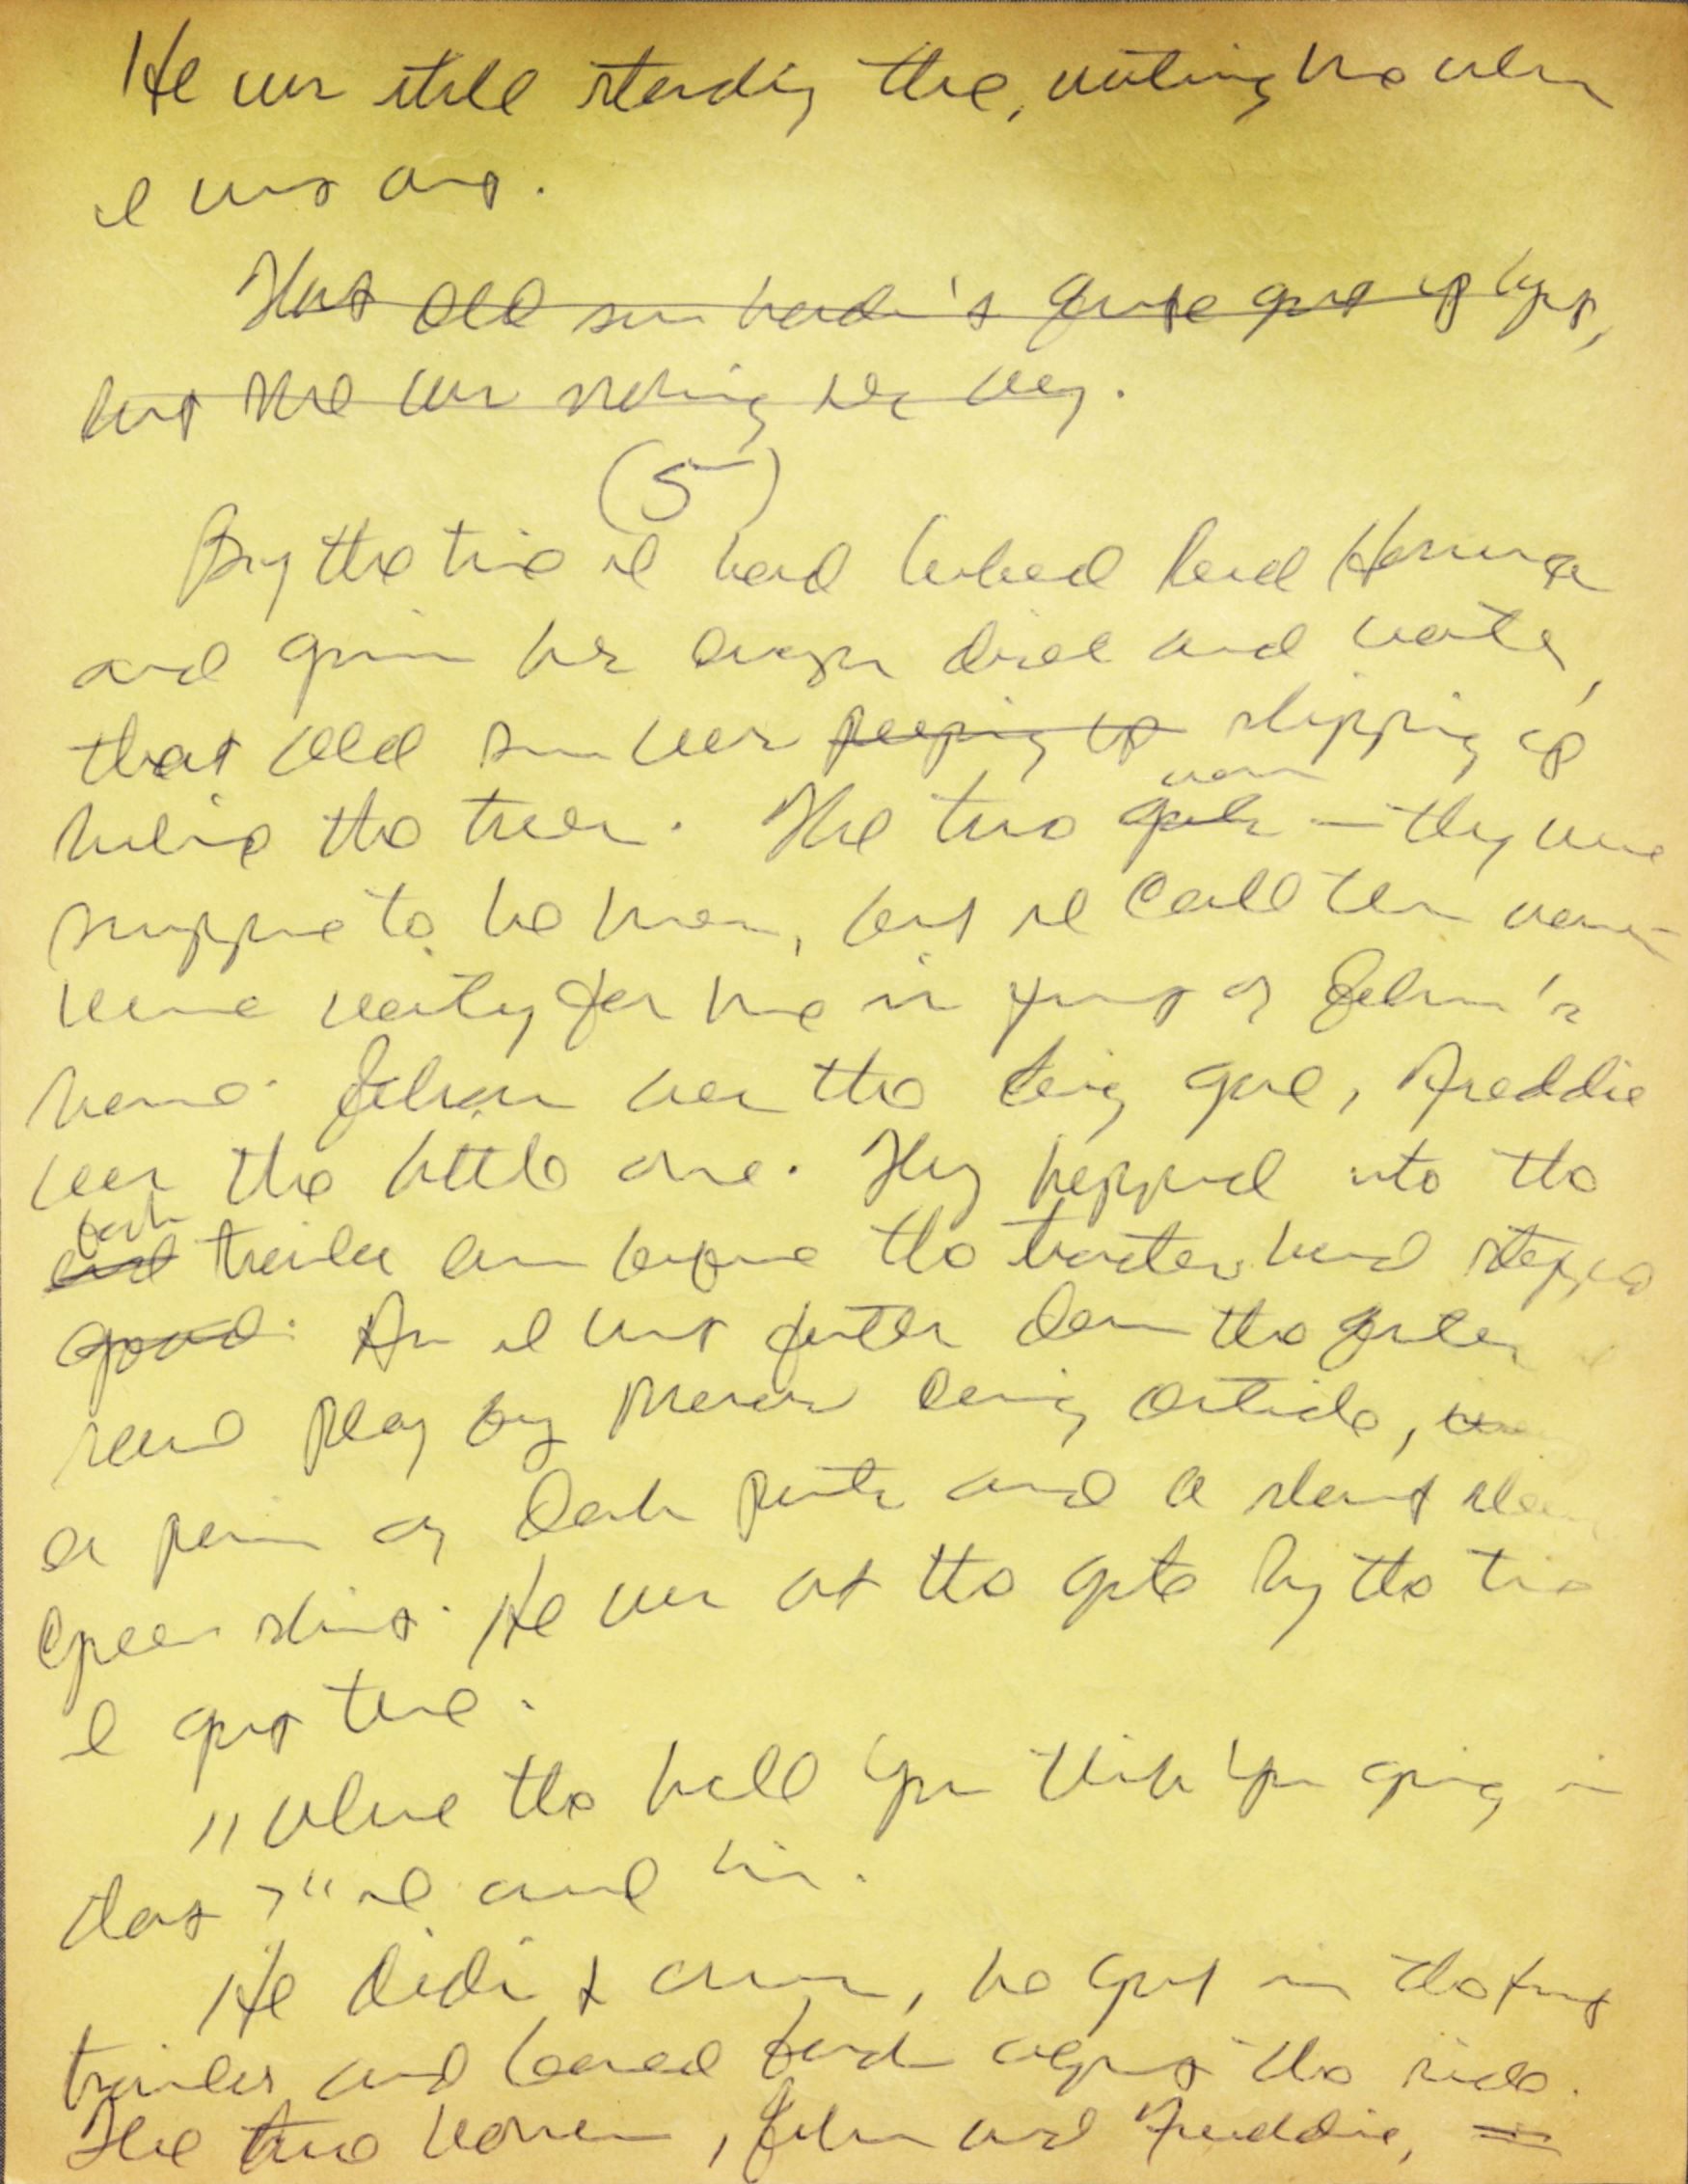 He was still standing there, waiting
I went out.
That old sun hadn't quite got up yet,
but she was making her way.
(5)
By the time I had hooked
and given her enough diesel and water,
that old sun was peeping up slipping up
behind the trees. The two gals women — they were
suppose to be men, but I call them women
were waiting for me in front of John's
house. John was the big one, Freddie
was the little one. They hopped into the
back trailer even before the tractor had stopped
good. As I went further down the quarter, I
seen
a pair of dark pants and a
green shirt. He was at the gate by the time
I got there.
"Where the hell you think you going in
that?" I asked him.
He didn't answer, he got in the front
trailer and leaned back against the side.
The two women, John and Freddie,